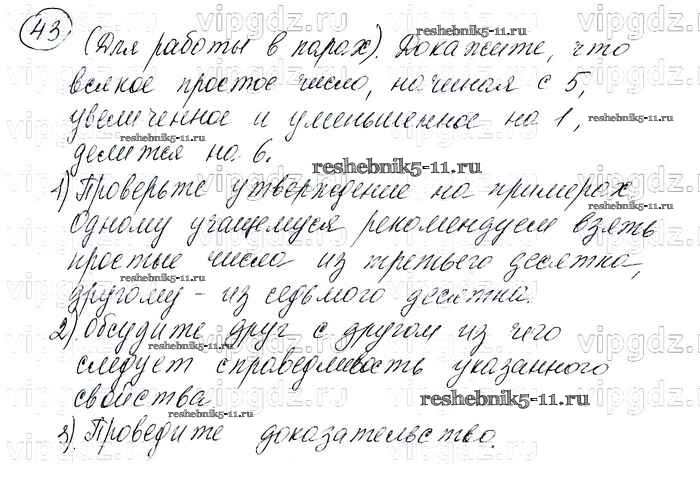 43 (Для работы в парах). Докажите, что
всякое простое число, начиная с 5,
увеличенное и уменьшенное на 1,
делится на 6.
1) Проверьте утверждение на примерах.
Одному учащемуся рекомендуем взять
простые числа из третьего десятка,
другому - из седьмого десятка.
2) Обсудите друг с другом из чего
следует справедливость указанного
свойства
3). Проведите доказательство.